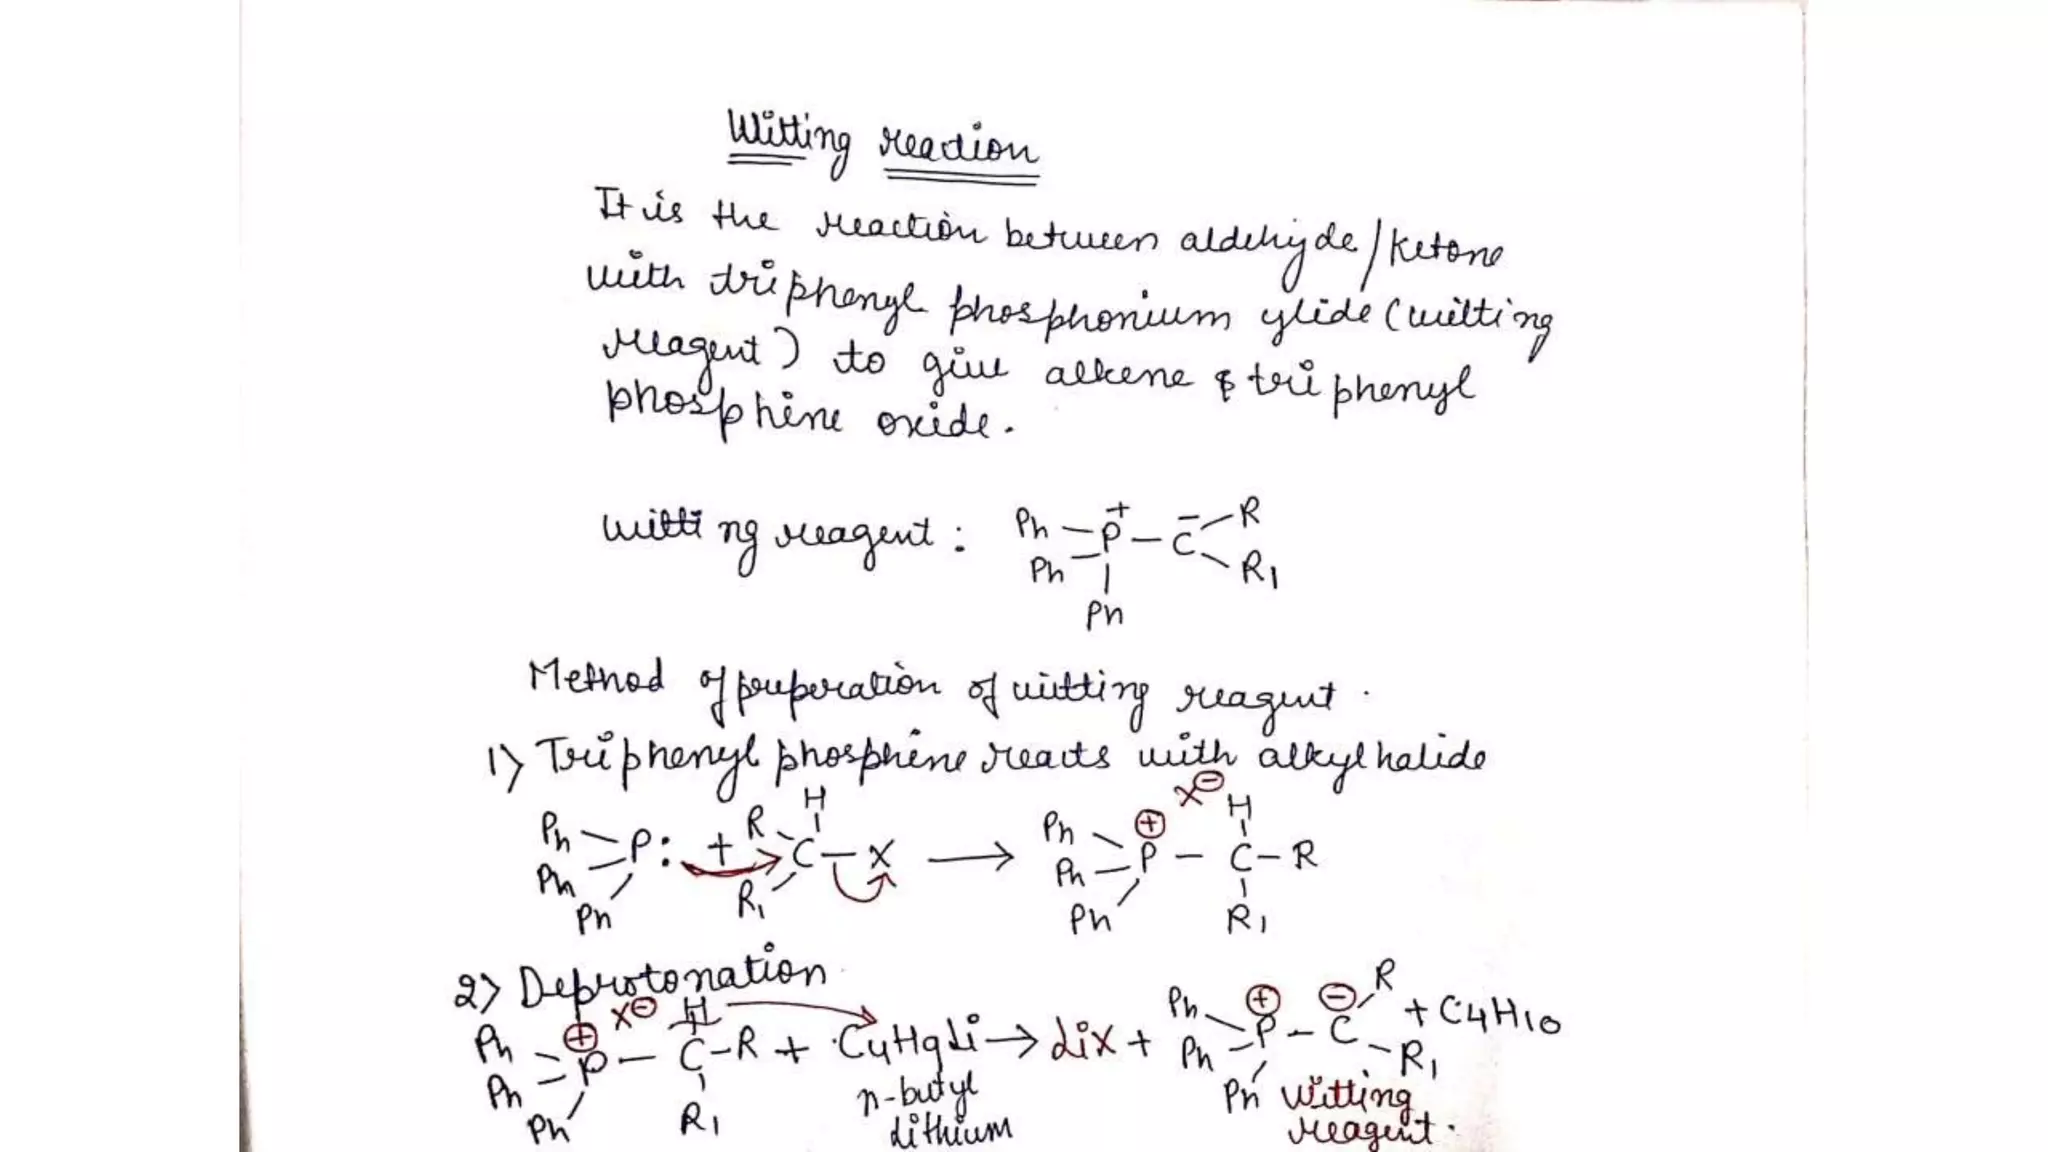 Witting reaction
It is the reaction between aldehyde/Ketone
with triphenyl phosphonium ylide (witting
reagent) to give alkene & triphenyl
phosphine oxide.
witting reagent : Ph P+ C- R
Ph R1
Ph
Method of preperation of witting reagent.
1) Triphenyl phosphine reacts with alkylhalide
Ph P: + R C H X → Ph P ⊕ X⊖ C H R
Ph R1 Ph R1
Ph Ph
2) Deprotonation
Ph P ⊕ X⊖ C H R + C4H9Li → LiX + Ph P ⊕ C ⊖ R + C4H10
Ph R1 n-butyl Ph R1
Ph Lithium Ph Witting
reagent.